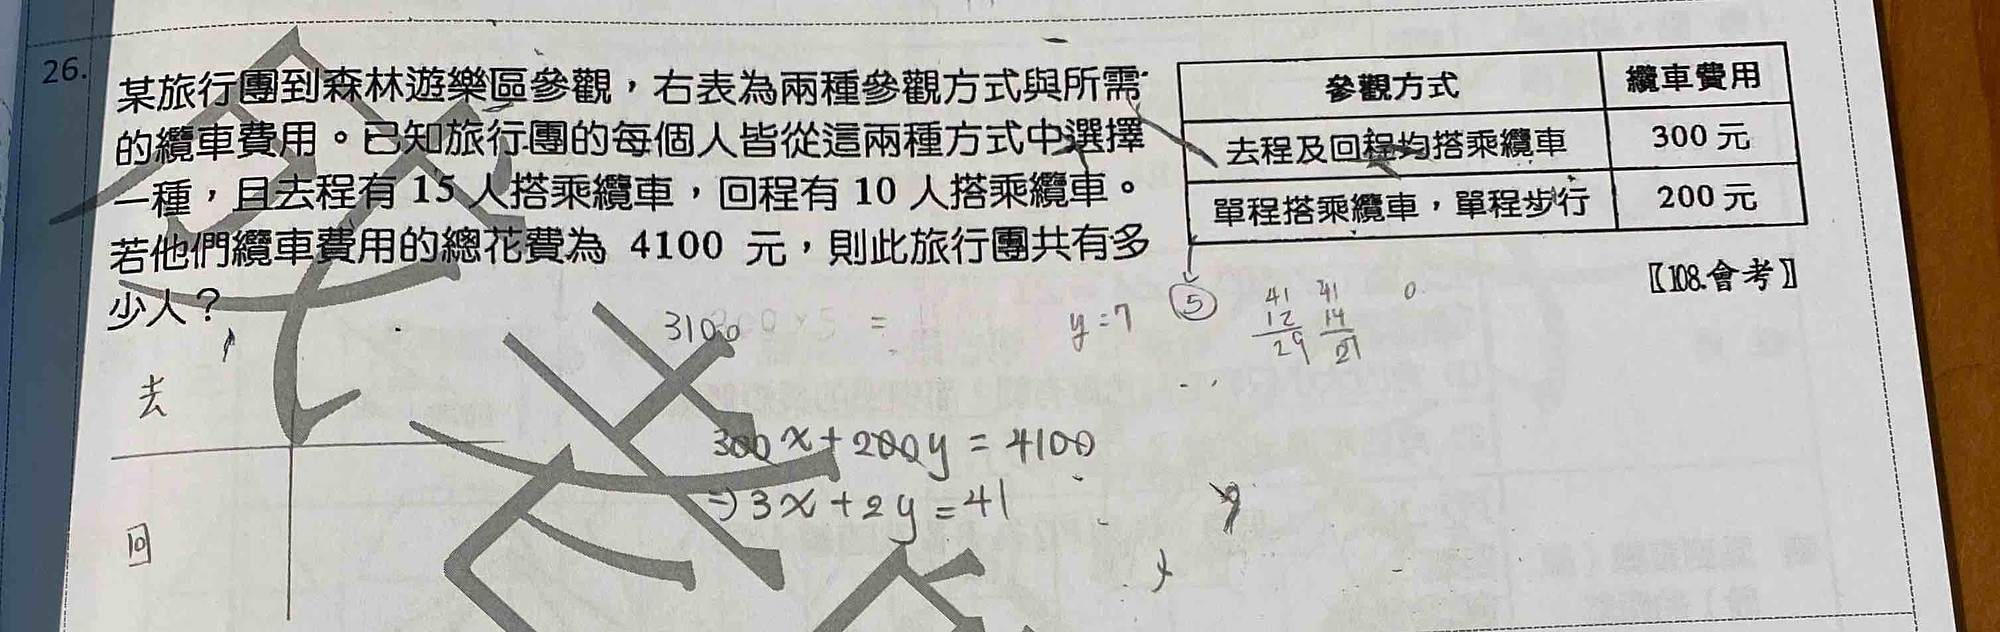 26.
某旅行團到森林遊樂區參觀，右表為兩種參觀方式與所需
的纜車費用。已知旅行團的每個人皆從這兩種方式中選擇
一種，且去程有 15 人搭乘纜車，回程有 10 人搭乘纜車。
若他們纜車費用的總花費為 4100 元，則此旅行團共有多
少人？
參觀方式 纜車費用
去程及回程均搭乘纜車 300 元
單程搭乘纜車，單程步行 200 元
【108.會考】
去
回
3100
y=7
5
41 41
12 14
29 27
300x+200y=4100
⇒3x+2y=41